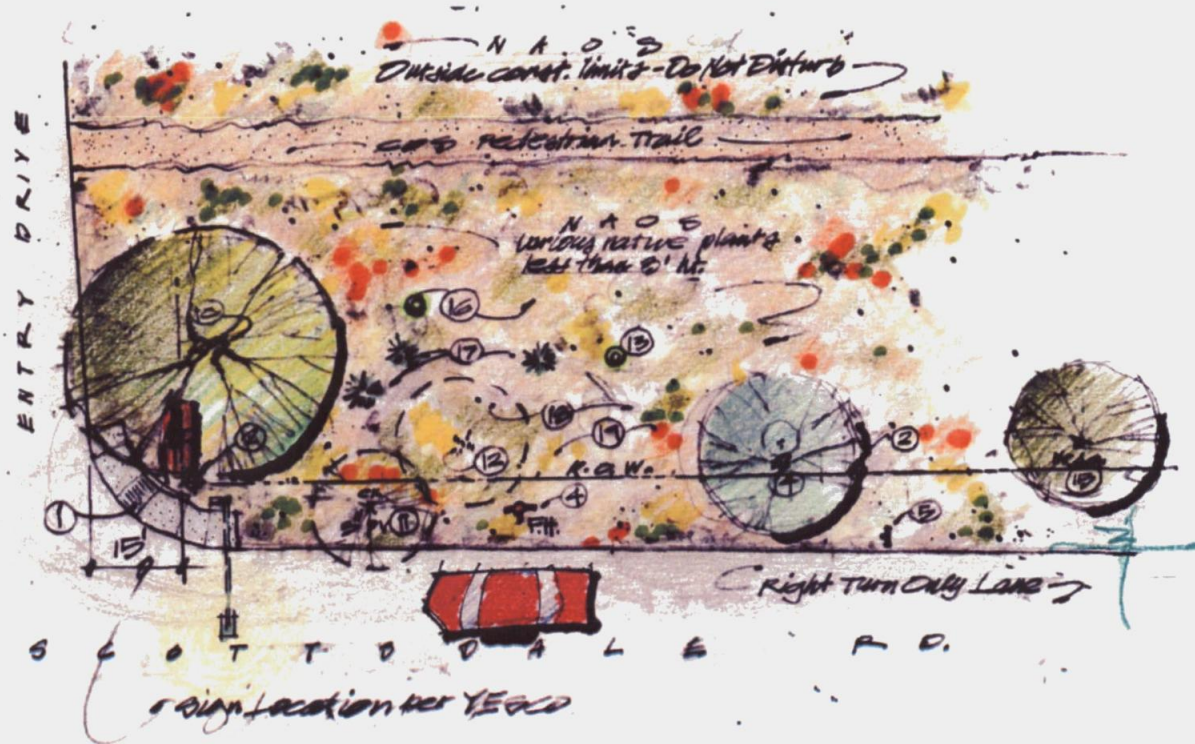 N A O S
Outside const. limits - Do Not Disturb
Pedestrian Trail
ENTRY DRIVE
N A O S
various native plants
less than 3' ht.
16
17
13
18
19
12
2
R.O.W.
4
11
F.H.
5
1
15'
Right Turn Only Lane
SCOTTSDALE RD.
sign Location per YESCO